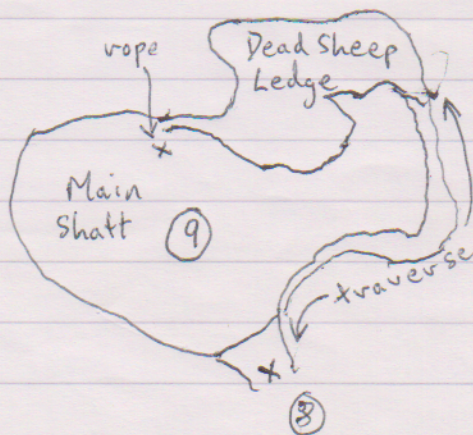 rope
Dead Sheep
Ledge
x
Main
Shaft
9
traverse
x
8